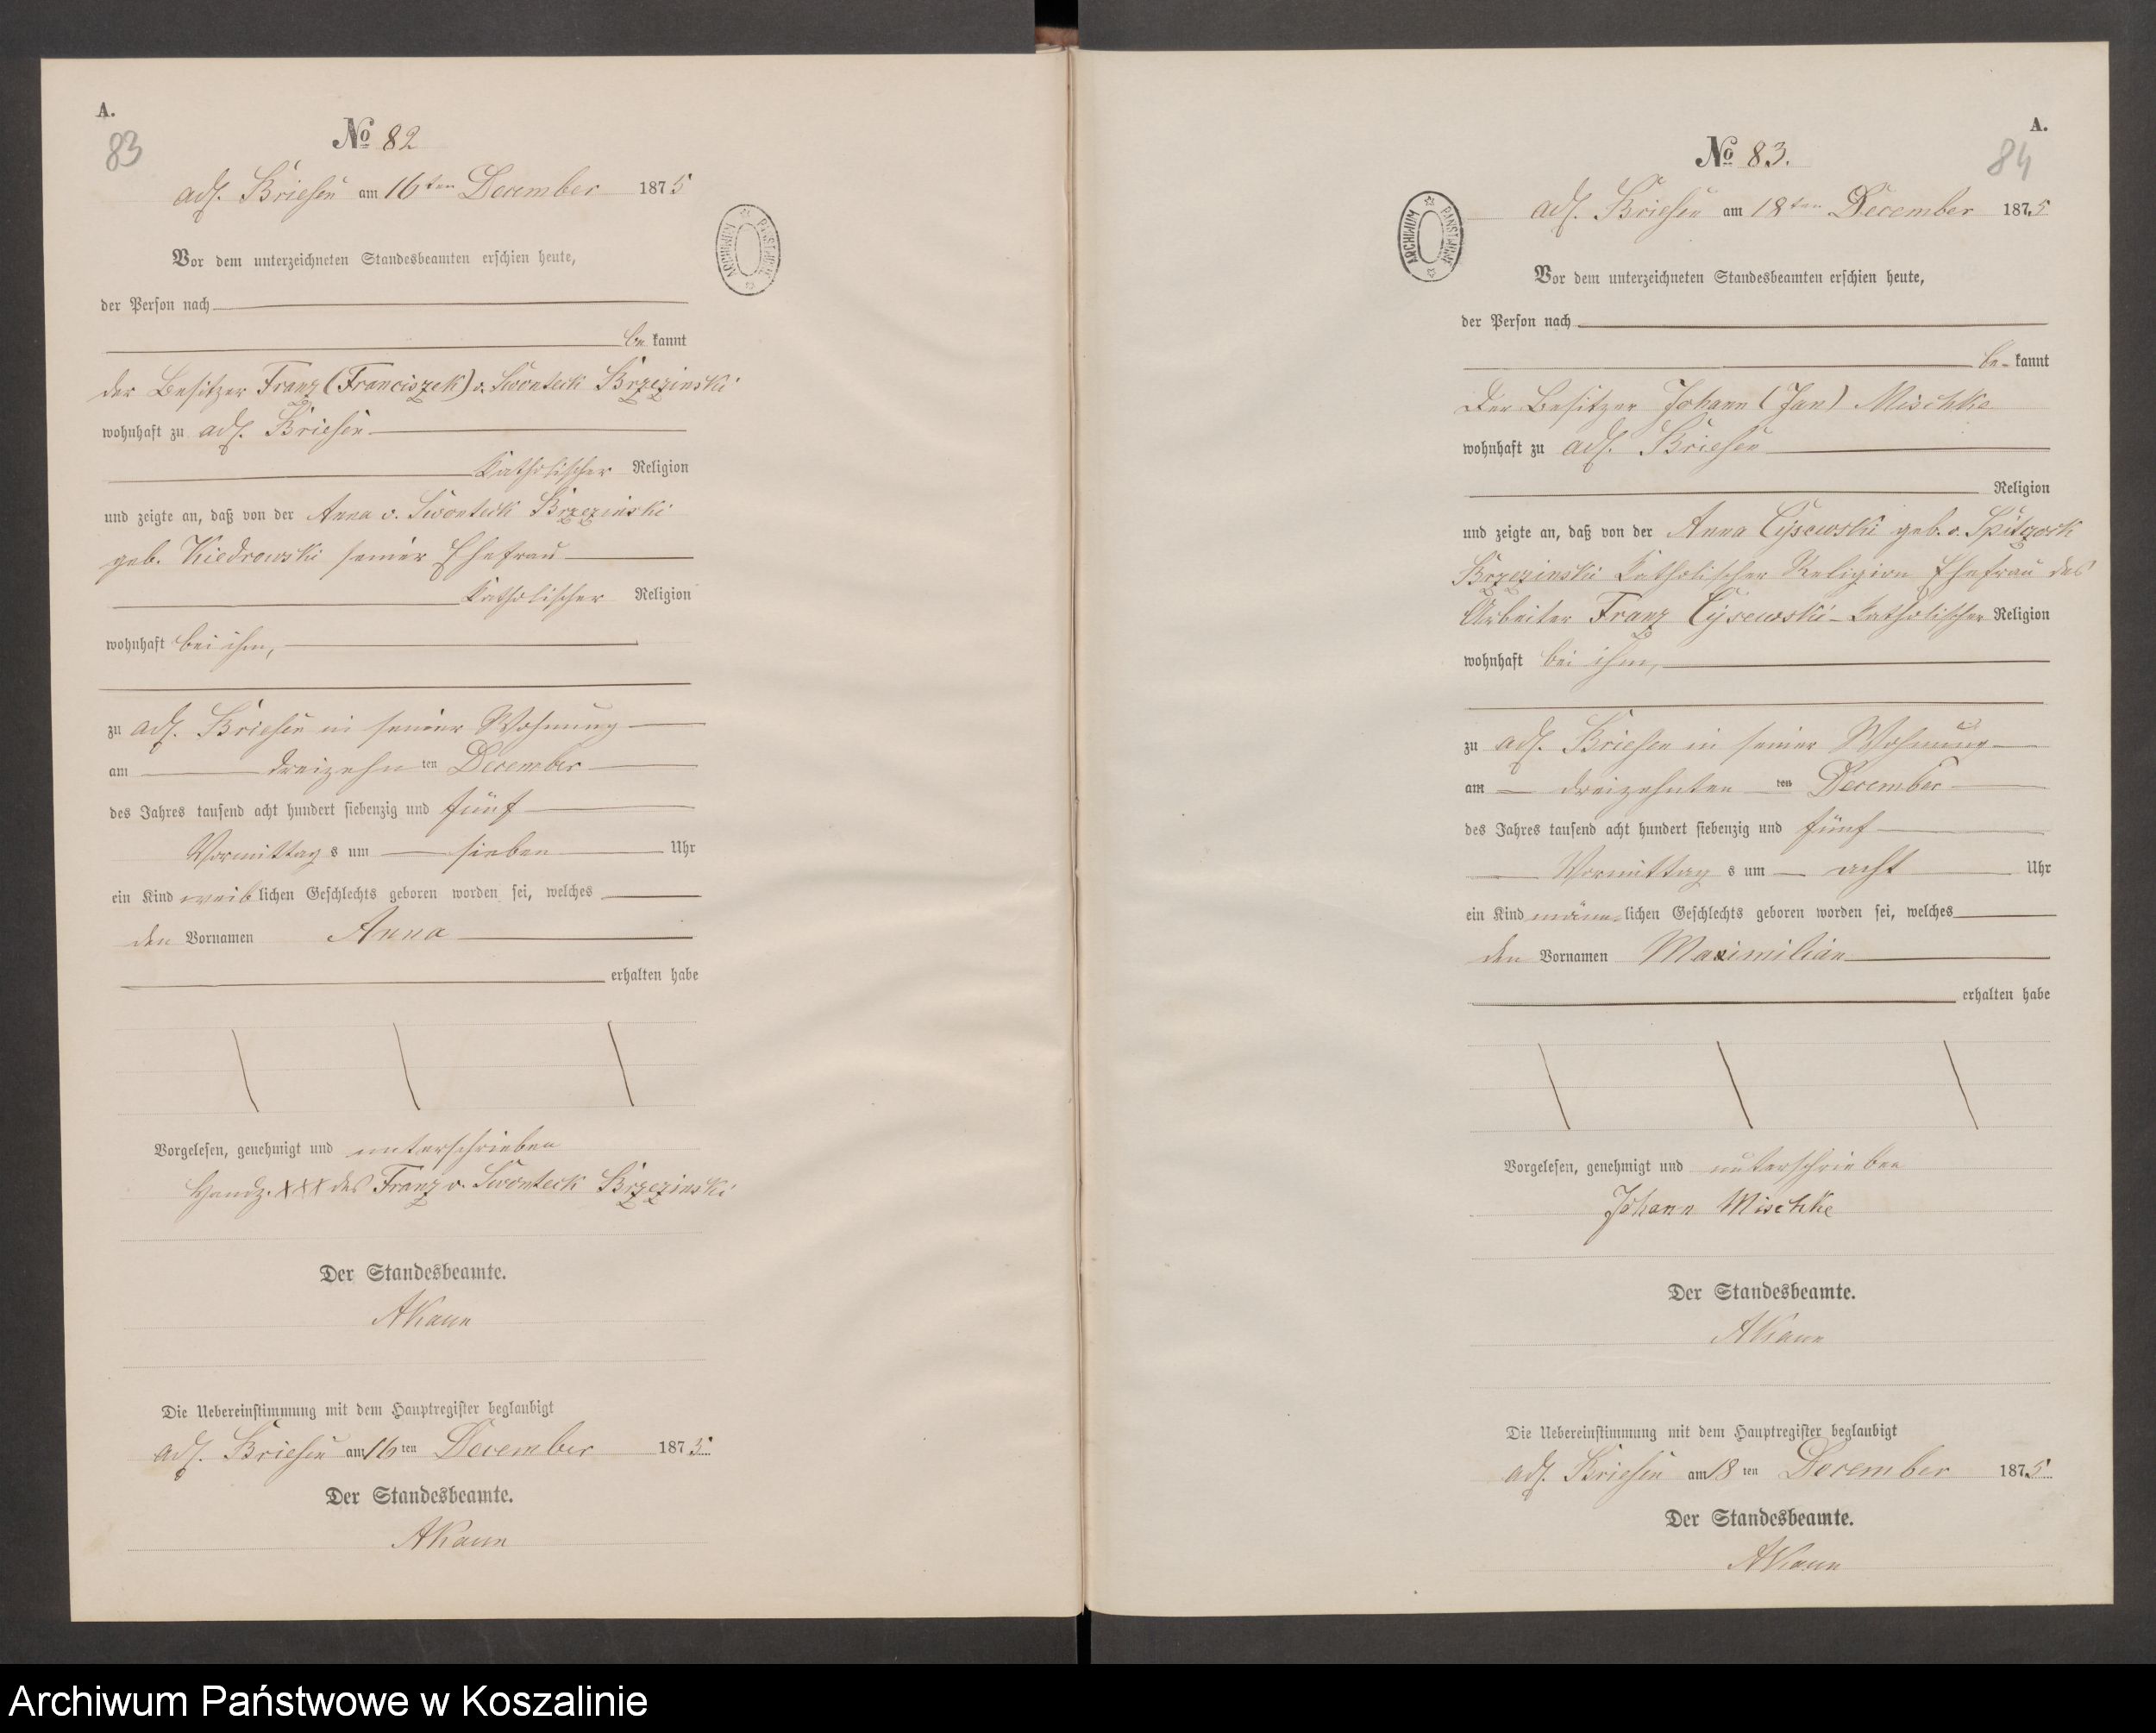 A.
83
№ 82
adl. Briesen am 16ten December 1875
Vor dem unterzeichneten Standesbeamten erschien heute,
der Person nach
be kannt
der Besitzer Franz (Franciszek) v. Swonteck Brzezinski
wohnhaft zu adl. Briesen
katholischer Religion
und zeigte an, daß von der Anna v. Swonteck Brzezinski
geb. Kiedrowski seiner Ehefrau
katholischer Religion
wohnhaft bei ihm,
zu adl. Briesen in seiner Wohnung
am dreizehn ten December
des Jahres tausend acht hundert siebenzig und fünf
Vormittag s um sieben Uhr
ein Kind weib lichen Geschlechts geboren worden sei, welches
den Vornamen Anna
erhalten habe
Vorgelesen, genehmigt und unterschrieben
Handz. XXX des Franz v. Swonteck Brzezinski
Der Standesbeamte.
AKaun
Die Uebereinstimmung mit dem Hauptregister beglaubigt
adl. Briesen am 16 ten December 1875
Der Standesbeamte.
AKaun
ARCHIWUM PAŃSTWOWE
A.
84
№ 83.
adl. Briesen am 18ten December 1875
ARCHIWUM PAŃSTWOWE
Vor dem unterzeichneten Standesbeamten erschien heute,
der Person nach
be- kannt
Der Besitzer Johann (Jan) Mischke
wohnhaft zu adl. Briesen
Religion
und zeigte an, daß von der Anna Cysewski geb. v. Spitzock
Brzezinski katholischer Religion Ehefrau des
Arbeiter Franz Cysewski - katholischer Religion
wohnhaft bei ihm,
zu adl. Briesen in seiner Wohnung
am dreizehnten ten December
des Jahres tausend acht hundert siebenzig und fünf
Vormittag s um acht Uhr
ein Kind männ lichen Geschlechts geboren worden sei, welches
den Vornamen Maximilian
erhalten habe
Vorgelesen, genehmigt und unterschrieben
Johann Mischke
Der Standesbeamte.
AKaun
Die Uebereinstimmung mit dem Hauptregister beglaubigt
adl. Briesen am 18 ten December 1875
Der Standesbeamte.
AKaun
Archiwum Państwowe w Koszalinie